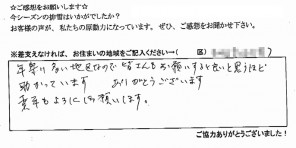 ☆ご感想をお願いします☆
今シーズンの排雪はいかがでしたか？
お客様の声が、私たちの原動力になっています。ぜひ、ご感想をお聞かせ下さい。
※差支えなければ、お住まいの地域をご記入ください→（ 区）
年寄り多い地区なので皆さんもお願いすると言いと思うほど
助かっています ありがとうございます
来年もよろしくお願いします。
ご協力ありがとうございました！